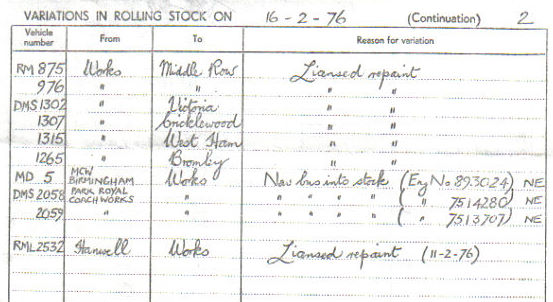 VARIATIONS IN ROLLING STOCK ON 16-2-76 (Continuation) 2
Vehicle number From To Reason for variation
RM 875 Works Middle Row Liansed repaint
976 " " " "
DMS 1302 " Victoria " "
1307 " Cricklewood " "
1315 " West Ham " "
1265 " Bromley " "
MD 5 MCW BIRMINGHAM Works New bus into stock (Eng No 893024) NE
DMS 2058 PARK ROYAL COACHWORKS " " " " " ( " 7514280) NE
2059 " " " " " " ( " 7513707) NE
RML2532 Hanwell Works Liansed repaint (11-2-76)